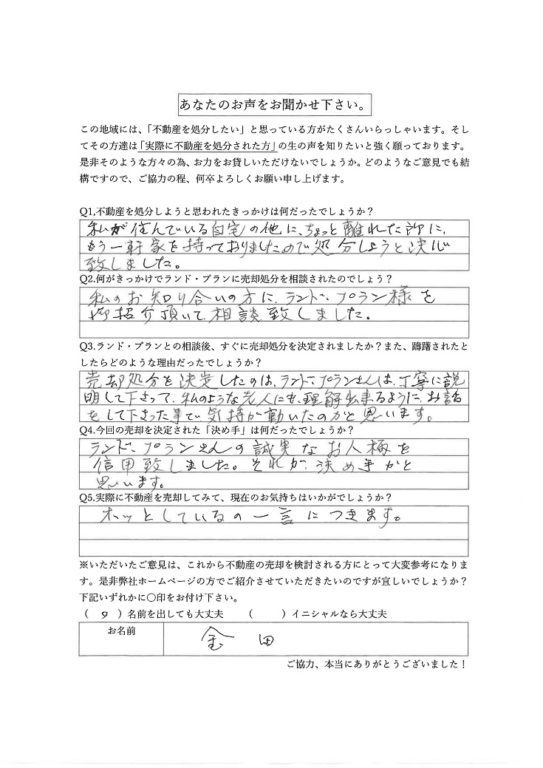 あなたのお声をお聞かせ下さい。
この地域には、「不動産を処分したい」と思っている方がたくさんいらっしゃいます。そし
てその方達は「実際に不動産を処分された方」の生の声を知りたいと強く願っております。
是非そのような方々の為、お力をお貸しいただけないでしょうか。どのようなご意見でも結
構ですので、ご協力の程、何卒よろしくお願い申し上げます。
Q1.不動産を処分しようと思われたきっかけは何だったでしょうか？
私が住んでいる自宅の他に、ちょっと離れた所に、
もう一軒家を持っておりましたので処分しようと決心
致しました。
Q2.何がきっかけでランド・プランに売却処分を相談されたのでしょう？
私のお知り合いの方に、ランド、プラン様を
御紹介頂いて相談致しました。
Q3.ランド・プランとの相談後、すぐに売却処分を決定されましたか？また、躊躇されたと
したらどのような理由だったでしょうか？
売却処分を決定したのは、ランド、プランさんは、丁寧に説
明して下さって、私のような老人にも、理解出来るように、お話
をして下さった事で気持が動いたのかと思います。
Q4.今回の売却を決定された「決め手」は何だったでしょうか？
ランド、プランさんの誠実なお人極を
信用致しました。それが、決め手かと
思います。
Q5.実際に不動産を売却してみて、現在のお気持ちはいかがでしょうか？
ホッとしているの一言につきます。
※いただいたご意見は、これから不動産の売却を検討される方にとって大変参考になりま
す。是非弊社ホームページの方でご紹介させていただきたいのですが宜しいでしょうか？
下記いずれかに〇印をお付け下さい。
（ ○ ）名前を出しても大丈夫 （ ）イニシャルなら大丈夫
お名前 金田
ご協力、本当にありがとうございました！